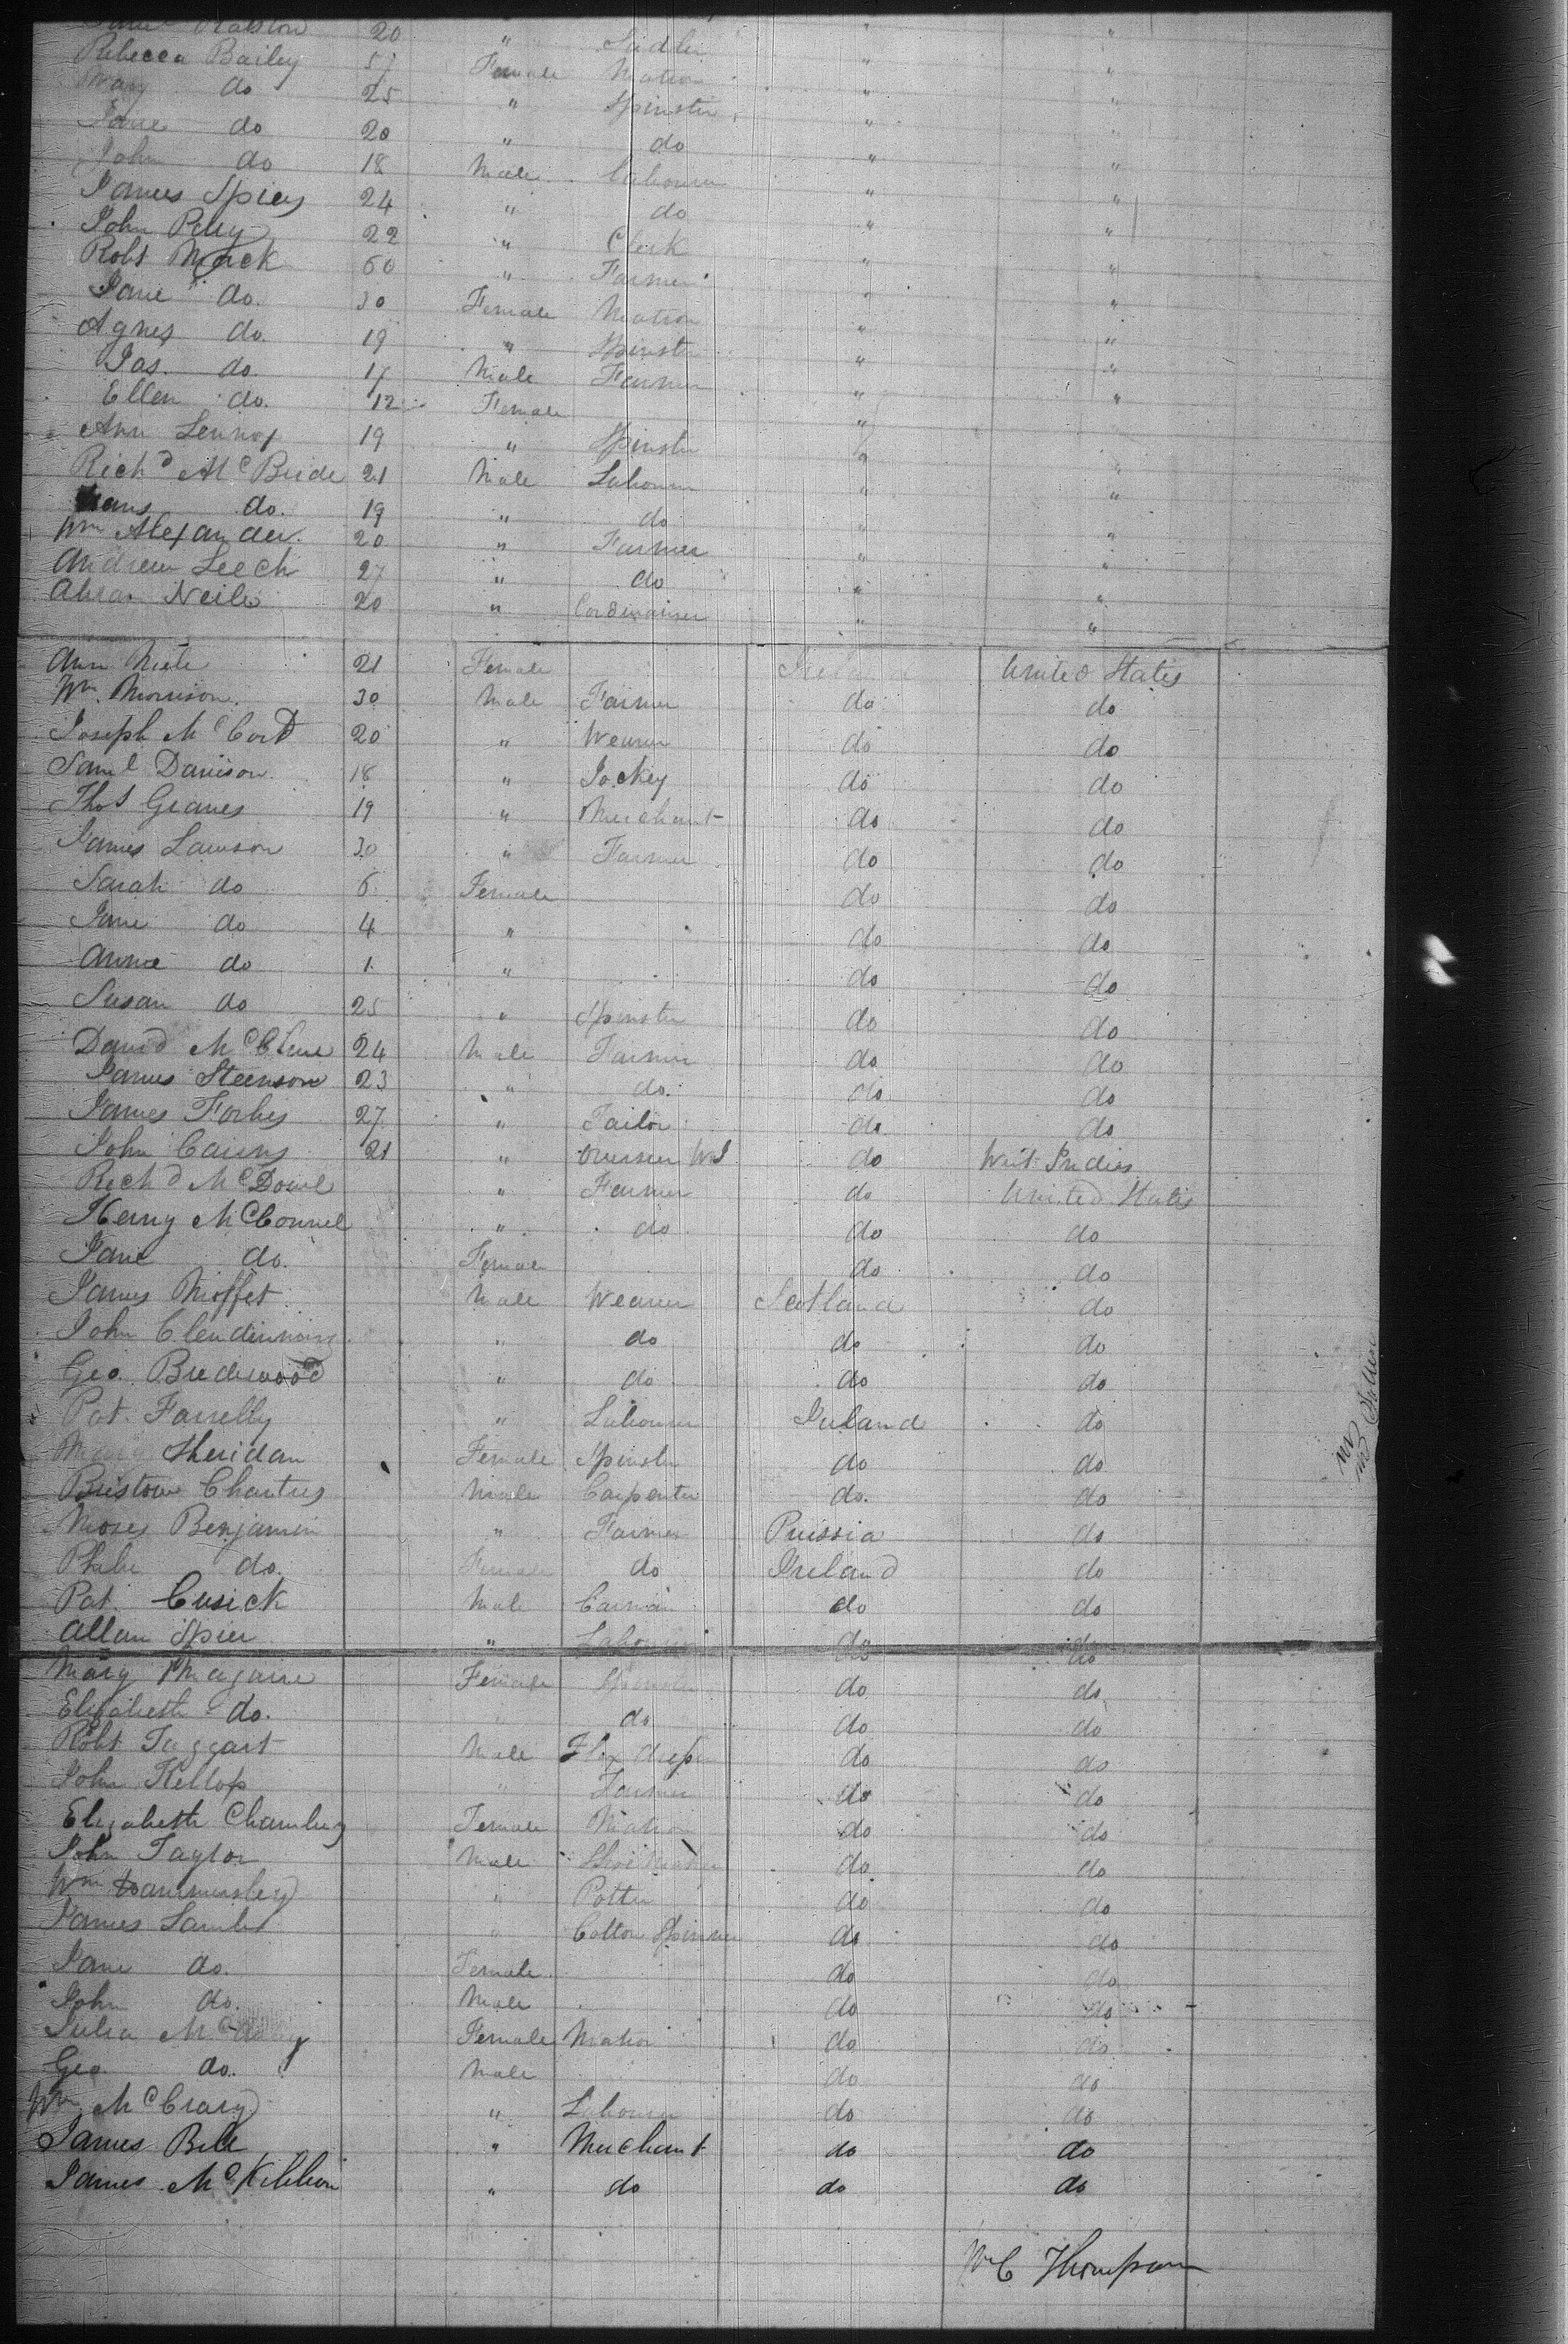 Ralston 20 " Sadler " "
Rebecca Bailey 57 Female Matron " "
Mary do 25 " Spinster " "
Jane do 20 " do "
John do 18 Male Labourer " "
James Spiers 24 " do " "
John Perry 22 " Clerk " "
Robt Mack 60 " Farmer " "
Jane do. 30 Female Matron " "
Agnes do. 19 " Spinster " "
Jas. do. 17 Male Farmer " "
Ellen do. 12 Female " "
Ann Lennox 19 " Spinster "
Richd McBride 21 Male Labourer " "
do. 19 " do " "
Wm Alexander. 20 " Farmer " "
Andrew Leech 27 " do " "
Neile 20 " Cordwainer " "
Ann Neile 21 Female Ireland United States
Wm. Morrison. 30 Male Farmer do do
Joseph McCord 20 " Weaver do do
Saml Davison 18 " Jockey do do
Thos Graves 19 " Merchant do do
James Lawson 30 " Farmer do do
Sarah do 6 Female do do
Jane do 4 " do do
Annie do 1. " do do
Susan do 25 " Spinster do do
David McClure 24 Male Farmer do do
James Steenson 23 " do. do do
James Forbes 27 " Tailor do do
John Cairns 21 " Overseer WI do West Indies
Richd McDowel " Farmer do United States
Henry McConnel " do do do
Jane do. Female do do
James Moffet Male Weaver Scotland do
John Clendinning " do do do
Geo. Bredewood " do do do
Pat. Farrelly " Labourer Ireland do
Mary Sheridan Female Spinster do do
Bristowe Charters Male Carpenter do. do
Moses Benjamin " Farmer Prussia do
Phebe do. Female do Ireland do
Pat. Cusick Male Carman do do
Allan Spier " Labourer do do
Mary Magaire Female Spinster do do
Elizabeth do. " do do do
Robt Taggart Male Flax do do
John Kellop " Farmer do do
Elizabeth Chambers Female Matron do do
John Taylor Male Shoemaker do do
Wm " Potter do do
James Lambe " Cotton Spinner do do
Jane do. Female do do
John do. Male do do
Julia Female Matron do do
Geo do. Male do do
Wm McCrary " Labourer do do
James Bell " Merchant do do
James McKibbion " do do do
Wm C Thompson